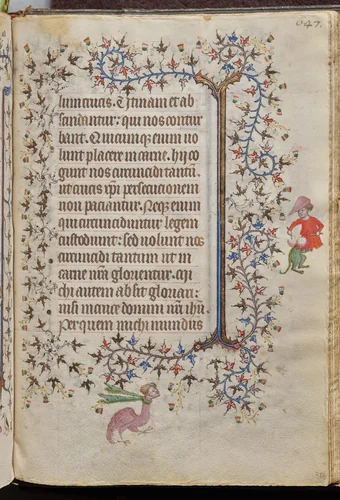 047.
liunt cutis. Utinam et ab
scindantur: qui nos contur
bant. Quicunque enim uo
lunt placere in carne. hij co
gunt nos circuncidi tantũ.
ut crucis xp̃i persecucionem
non paciantur. Neque enim
qui circunciduntur legem
custodiunt: sed uolunt nos
circuncidi tantum ut in
carne nr̃a glorientur. Mi
chi autem absit gloriari:
nisi in cruce domini nr̃i ihũ.
Per quem michi mundus